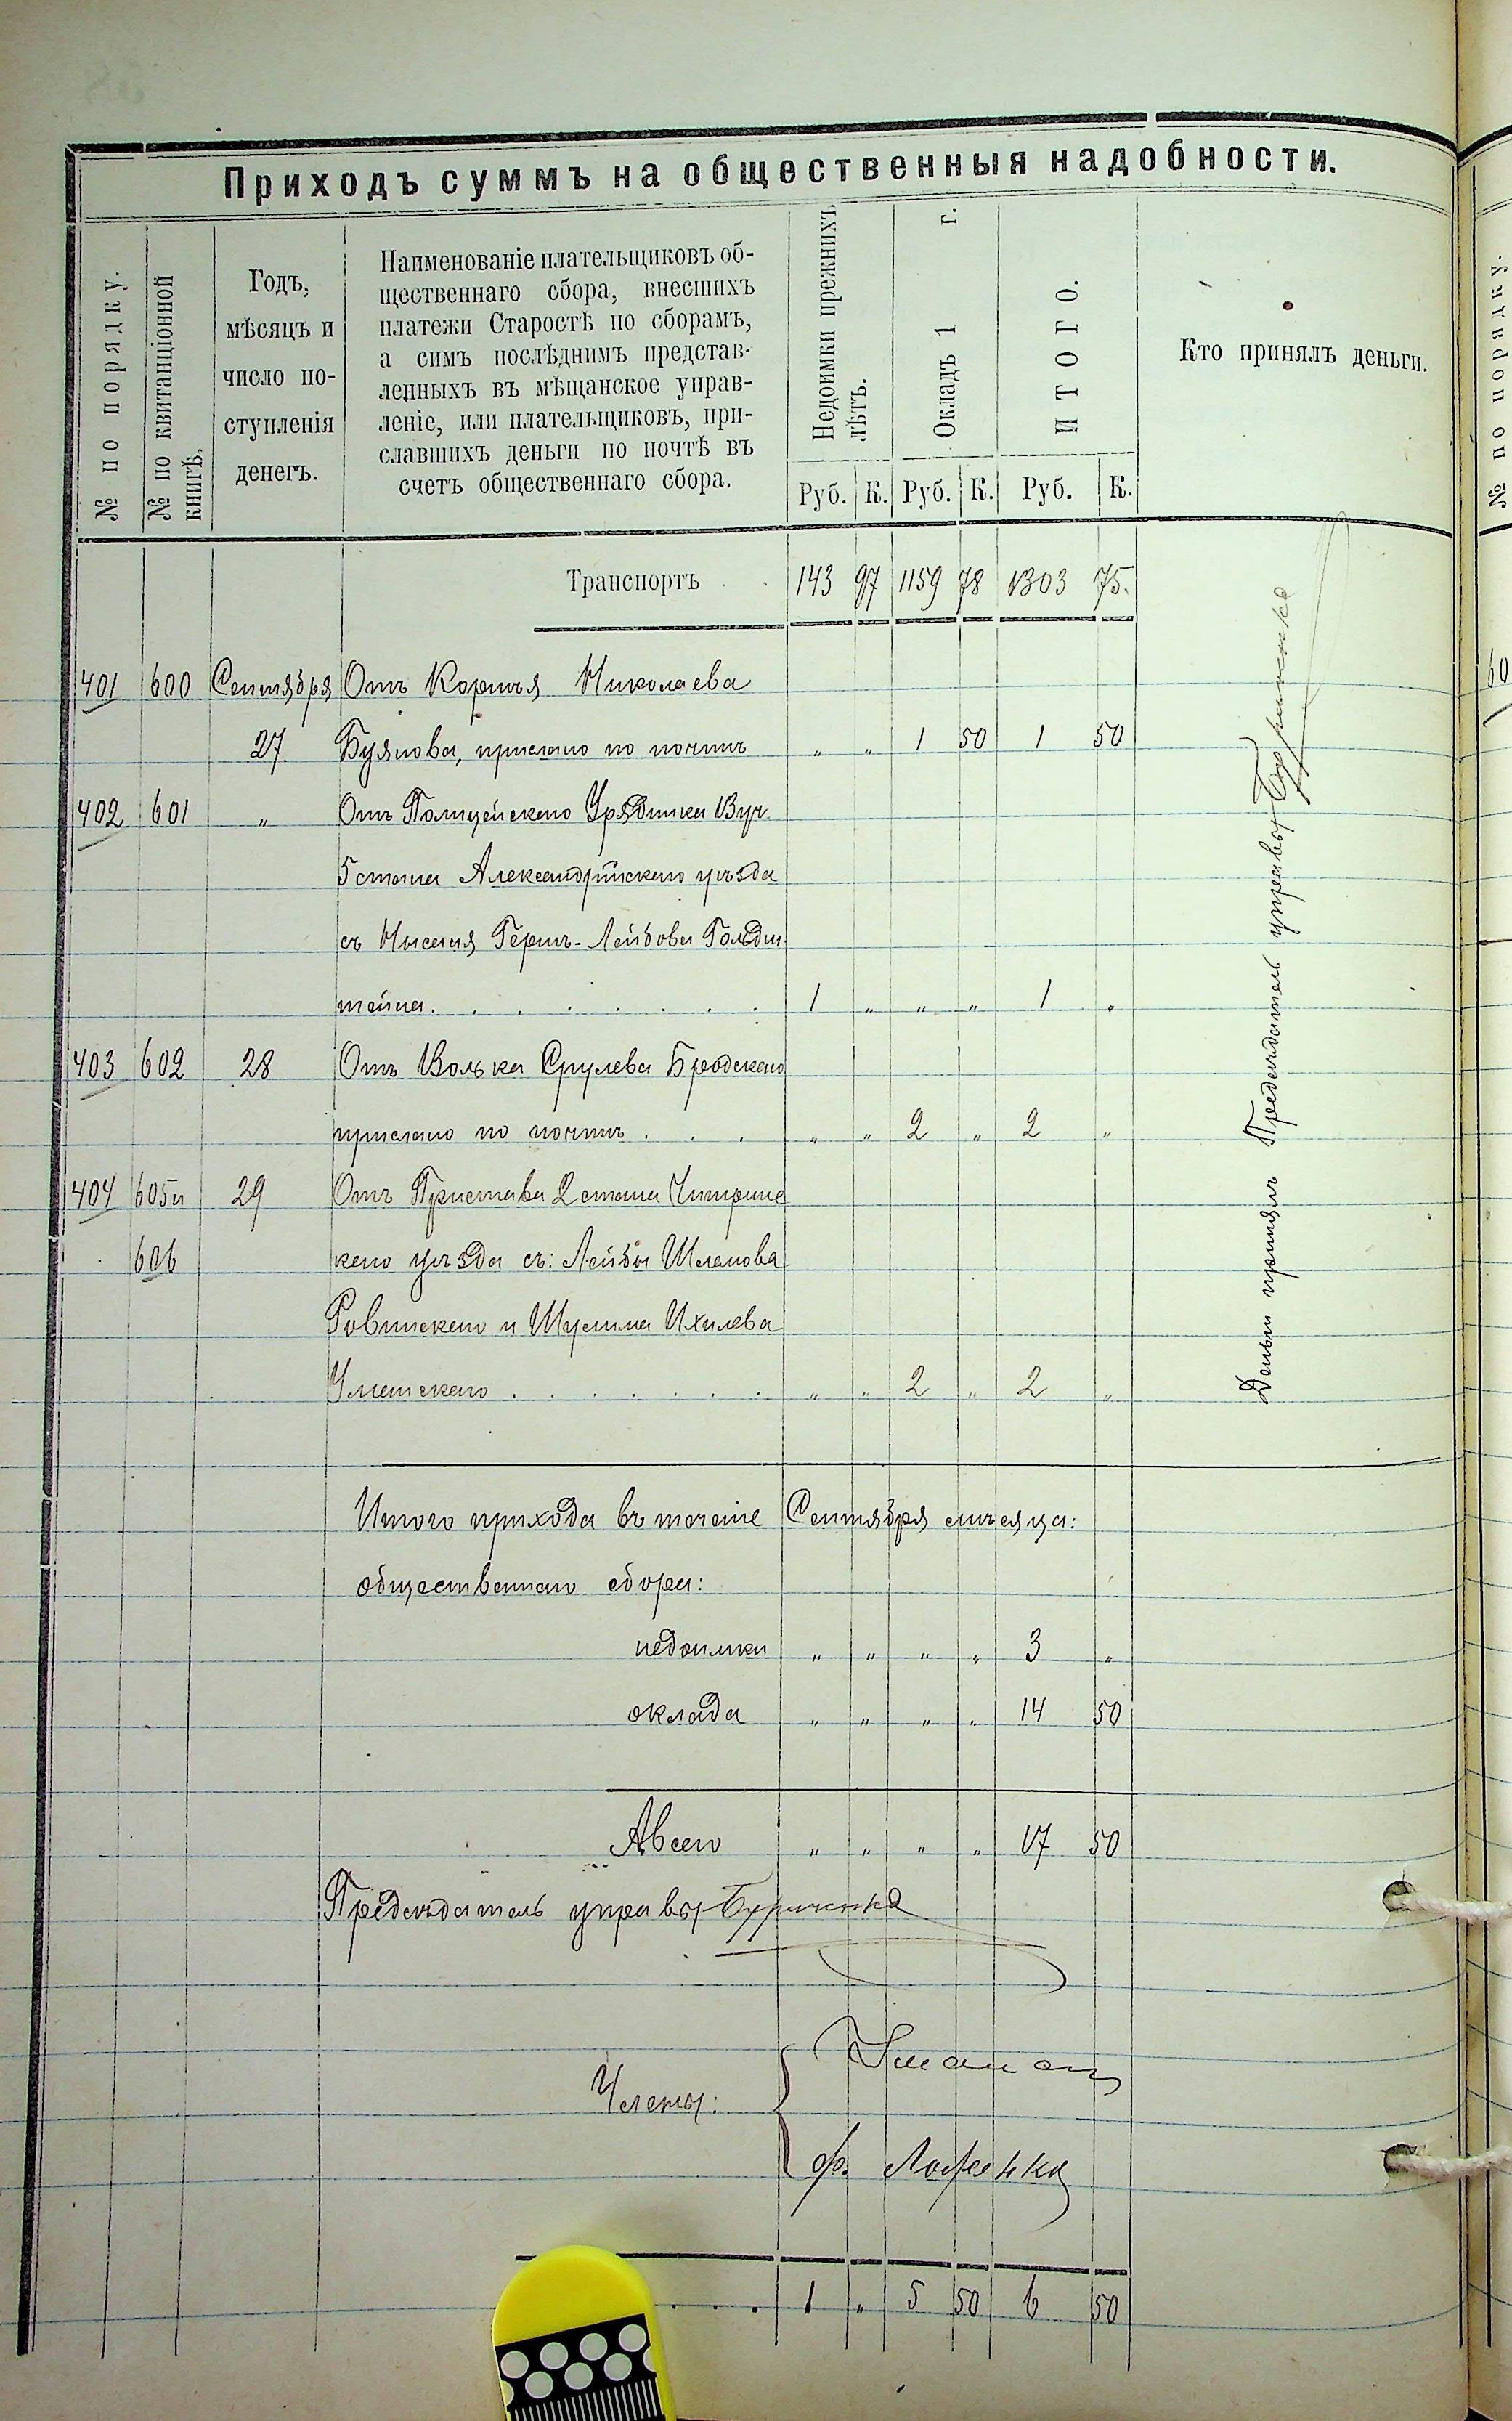 Приходъ суммъ на общественныя надобности.
№ по порядку.
№ по квитанціонной
книгѣ.
Годъ,
мѣсяцъ и
число по-
ступленія
денегъ.
Наименованіе плательщиковъ об-
щественнаго сбора, внесшихъ
платежи Старостѣ по сборамъ,
а симъ послѣднимъ представ-
ленныхъ въ мѣщанское управ-
леніе, или плательщиковъ, при-
славшихъ деньги по почтѣ въ
счетъ общественнаго сбора.
Недоимки прежнихъ
лѣтъ.
Окладъ 1 г.
ИТОГО.
Кто принялъ деньги.
Руб. К. Руб. К. Руб. К.
Транспортъ 143 97 1159 78 1303 75.
401 600 Сентября Отъ Корнѣя Николаева
27 Буянова, прислано по почтѣ „ „ 1 50 1 50
402 601 „ Отъ Полицейскаго Урядника 13 уч.
5 стана Александрійскаго уѣзда
съ Нисана Гершъ-Лейбова Гольдш
тейна. . . . . . . 1 „ „ „ 1 „
403 602 28 Отъ Волька Срулева Бродскаго
прислано по почтѣ . . . „ „ 2 „ 2 „
404 605 и 29 Отъ Пристава 2 стана Чигринс
606 каго уѣзда съ: Лейбы Шлемова
Ровинскаго и Шулима Ихилева
Уманскаго . . . . . . „ „ 2 „ 2 „
Итого прихода въ теченіе Сентября мѣсяца:
общественнаго сбора:
недоимки „ „ „ „ 3 „
оклада „ „ „ „ 14 50
А всего „ „ „ „ 17 50
Предсѣдатель управы
Члены:
1 „ 5 50 6 50
Деньги принялъ Предсѣдатель управы
№ по порядку.